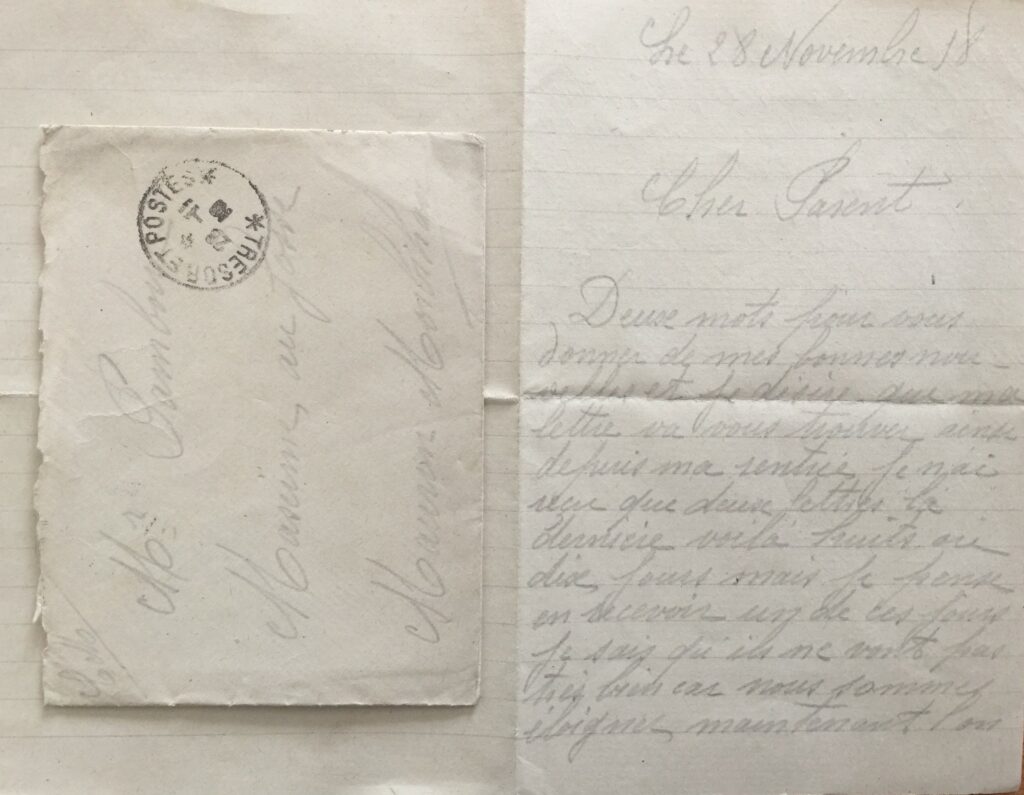 TRESOR ET POSTES
Mr
Maxime au
Mauron Morbihan
Le 28 Novembre 18
Cher Parent
Deux mots pour vous
donner de mes bonnes nou-
velles et je désire que ma
lettre va vous trouver ainsi
depuis ma rentrée je n'ai
recu que deux lettres la
dernière voilà huits ou
dix jours mais je pense
en recevoir un de ces jours
je sais qu'ils ne vont pas
très bien car nous sommes
éloignes maintenant l'on